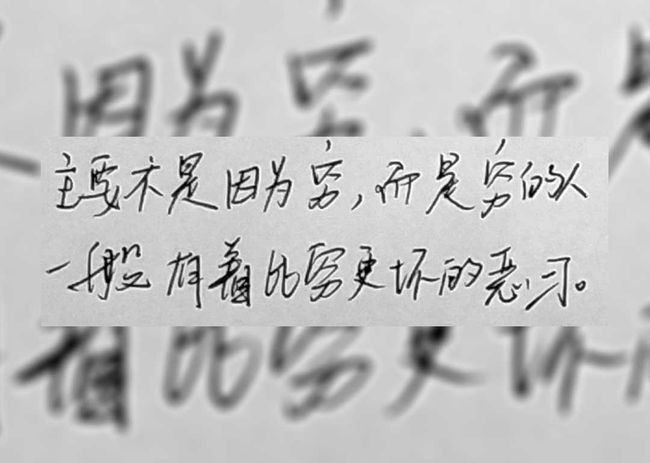 主要不是因为穷，而是穷的人
一般有着比穷更坏的恶习。